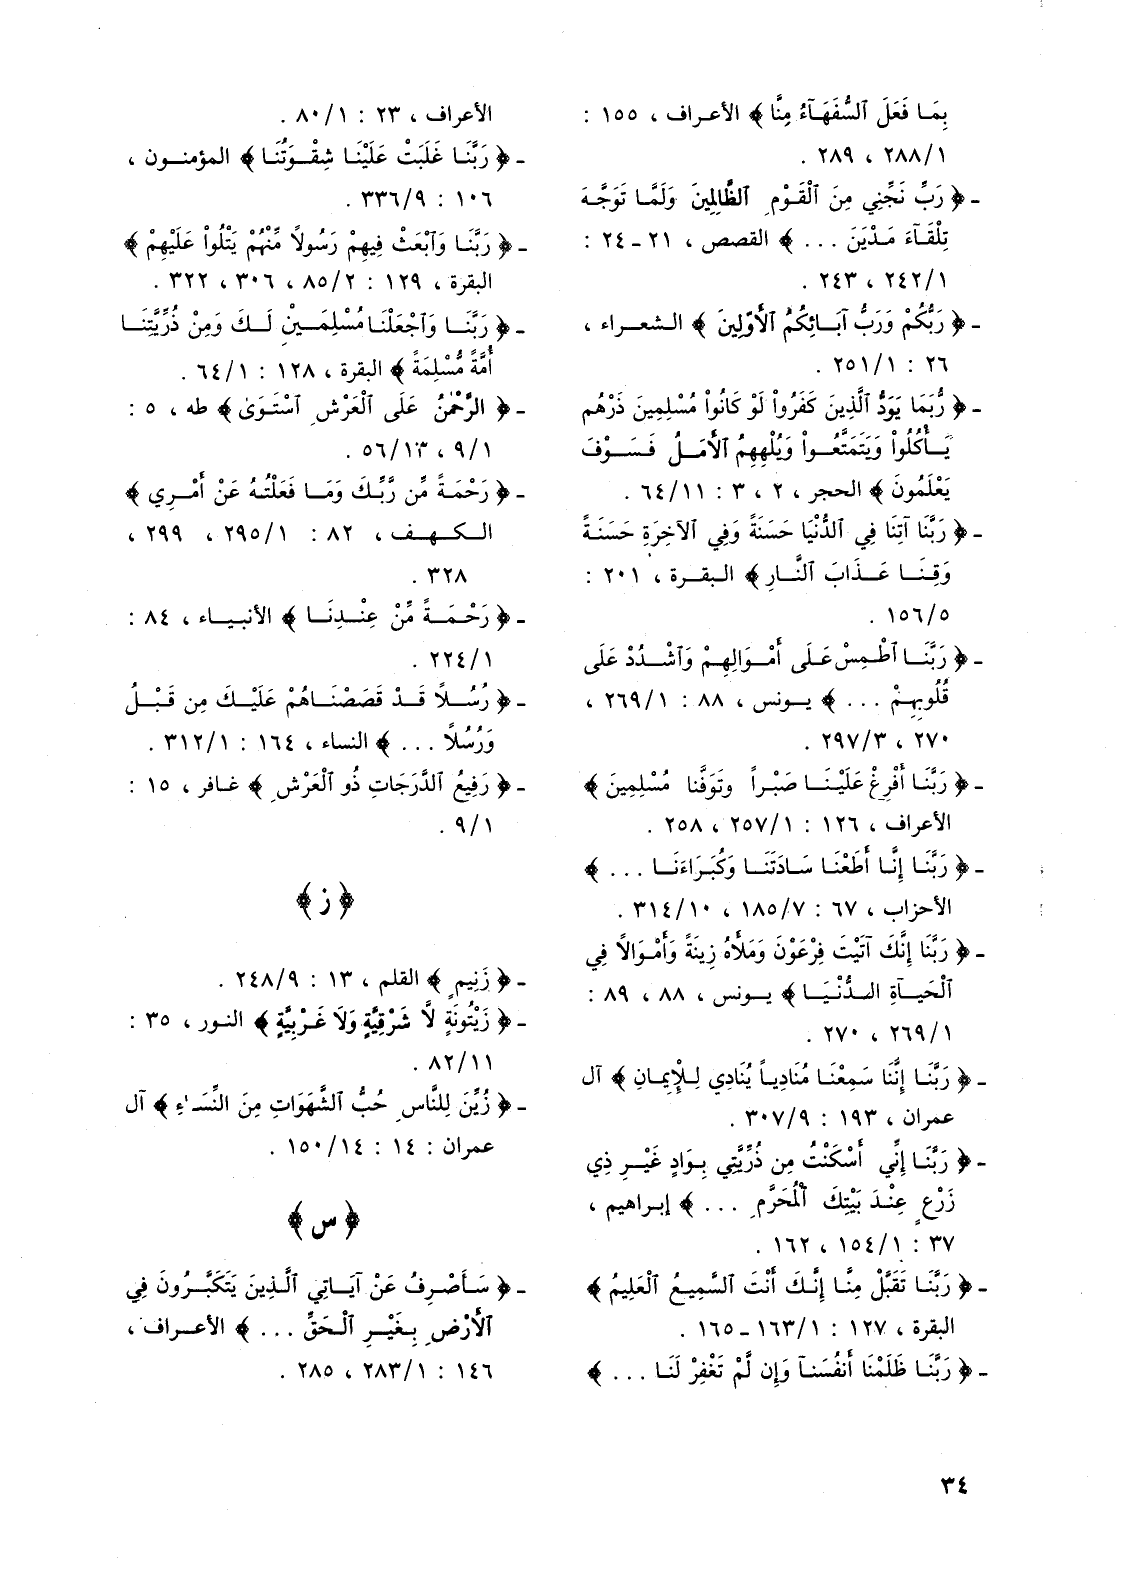 بِمَا فَعَلَ ٱلسُّفَهَآءُ مِنَّا ﴾ الأعراف ، ١٥٥ :
٢٨٨/١ ، ٢٨٩ .
- ﴿ رَبِّ نَجِّنِي مِنَ ٱلْقَوْمِ ٱلظَّالِمِينَ وَلَمَّا تَوَجَّهَ
تِلْقَآءَ مَدْيَنَ ... ﴾ القصص ، ٢١ - ٢٤ :
٢٤٢/١ ، ٢٤٣ .
- ﴿ رَبُّكُمْ وَرَبُّ آبَائِكُمُ ٱلْأَوَّلِينَ ﴾ الشعراء ،
٢٦ : ٢٥١/١ .
- ﴿ رُّبَمَا يَوَدُّ ٱلَّذِينَ كَفَرُواْ لَوْ كَانُواْ مُسْلِمِينَ ذَرْهُم
يَأْكُلُواْ وَيَتَمَتَّعُواْ وَيُلْهِهِمُ ٱلْأَمَلُ فَسَوْفَ
يَعْلَمُونَ ﴾ الحجر ، ٢ ، ٣ : ٦٤/١١ .
- ﴿ رَبَّنَا آتِنَا فِي ٱلدُّنْيَا حَسَنَةً وَفِي ٱلآخِرَةِ حَسَنَةً
وَقِنَا عَذَابَ ٱلنَّارِ ﴾ البقرة ، ٢٠١ :
١٥٦/٥ .
- ﴿ رَبَّنَا ٱطْمِسْ عَلَى أَمْوَالِهِمْ وَٱشْدُدْ عَلَى
قُلُوبِهِمْ ... ﴾ يونس ، ٨٨ : ٢٦٩/١ ،
٢٧٠ ، ٢٩٧/٣ .
- ﴿ رَبَّنَا أَفْرِغْ عَلَيْنَا صَبْراً وتَوَفَّنا مُسْلِمِينَ ﴾
الأعراف ، ١٢٦ : ٢٥٧/١ ، ٢٥٨ .
- ﴿ رَبَّنَا إِنَّا أَطَعْنَا سَادَتَنَا وَكُبَرَاءَنَا ... ﴾
الأحزاب ، ٦٧ : ١٨٥/٧ ، ٣١٤/١٠ .
- ﴿ رَبَّنَا إِنَّكَ آتَيْتَ فِرْعَوْنَ وَمَلأَهُ زِينَةً وَأَمْوَالاً فِي
ٱلْحَيَاةِ الدُّنْيَا ﴾ يونس ، ٨٨ ، ٨٩ :
٢٦٩/١ ، ٢٧٠ .
- ﴿ رَبَّنَا إِنَّنَا سَمِعْنَا مُنَادِياً يُنَادِي لِلْإِيمَانِ ﴾ آل
عمران ، ١٩٣ : ٣٠٧/٩ .
- ﴿ رَبَّنَا إِنِّي أَسْكَنْتُ مِن ذُرِّيَّتِي بِوَادٍ غَيْرِ ذِي
زَرْعٍ عِنْدَ بَيْتِكَ ٱلْمُحَرَّمِ ... ﴾ إبراهيم ،
٣٧ : ١٥٤/١ ، ١٦٢ .
- ﴿ رَبَّنَا تَقَبَّلْ مِنَّا إِنَّكَ أَنْتَ ٱلسَّمِيعُ ٱلْعَلِيمُ ﴾
البقرة ، ١٢٧ : ١٦٣/١ - ١٦٥ .
- ﴿ رَبَّنَا ظَلَمْنَا أَنفُسَنآ وَإِن لَّمْ تَغْفِرْ لَنَا ... ﴾
الأعراف ، ٢٣ : ٨٠/١ .
- ﴿ رَبَّنَا غَلَبَتْ عَلَيْنَا شِقْوَتُنَا ﴾ المؤمنون ،
١٠٦ : ٣٣٦/٩ .
- ﴿ رَبَّنَا وَٱبْعَثْ فِيهِمْ رَسُولاً مِّنْهُمْ يَتْلُواْ عَلَيْهِمْ ﴾
البقرة ، ١٢٩ : ٨٥/٢ ، ٣٠٦ ، ٣٢٢ .
- ﴿ رَبَّنَا وَٱجْعَلْنَا مُسْلِمَيْنِ لَكَ وَمِنْ ذُرِّيَّتِنَا
أُمَّةً مُّسْلِمَةً ﴾ البقرة ، ١٢٨ : ٦٤/١ .
- ﴿ الرَّحْمٰنُ عَلَى ٱلْعَرْشِ ٱسْتَوَىٰ ﴾ طه ، ٥ :
٩/١ ، ٥٦/١٣ .
- ﴿ رَحْمَةً مِّن رَّبِّكَ وَمَا فَعَلْتُهُ عَنْ أَمْرِي ﴾
الكهف ، ٨٢ : ٢٩٥/١ ، ٢٩٩ ،
٣٢٨ .
- ﴿ رَحْمَةً مِّنْ عِنْدِنَا ﴾ الأنبياء ، ٨٤ :
٢٢٤/١ .
- ﴿ رُسُلاً قَدْ قَصَصْنَاهُمْ عَلَيْكَ مِن قَبْلُ
وَرُسُلاً ... ﴾ النساء ، ١٦٤ : ٣١٢/١ .
- ﴿ رَفِيعُ ٱلدَّرَجَاتِ ذُو ٱلْعَرْشِ ﴾ غافر ، ١٥ :
٩/١ .
﴿ ز ﴾
- ﴿ زَنِيمٍ ﴾ القلم ، ١٣ : ٢٤٨/٩ .
- ﴿ زَيْتُونَةٍ لَّا شَرْقِيَّةٍ وَلَا غَرْبِيَّةٍ ﴾ النور ، ٣٥ :
٨٢/١١ .
- ﴿ زُيِّنَ لِلنَّاسِ حُبُّ ٱلشَّهَوَاتِ مِنَ النِّسَاءِ ﴾ آل
عمران : ١٤ : ١٥٠/١٤ .
﴿ س ﴾
- ﴿ سَأَصْرِفُ عَنْ آيَاتِي ٱلَّذِينَ يَتَكَبَّرُونَ فِي
ٱلْأَرْضِ بِغَيْرِ ٱلْحَقِّ ... ﴾ الأعراف ،
١٤٦ : ٢٨٣/١ ، ٢٨٥ .
٣٤